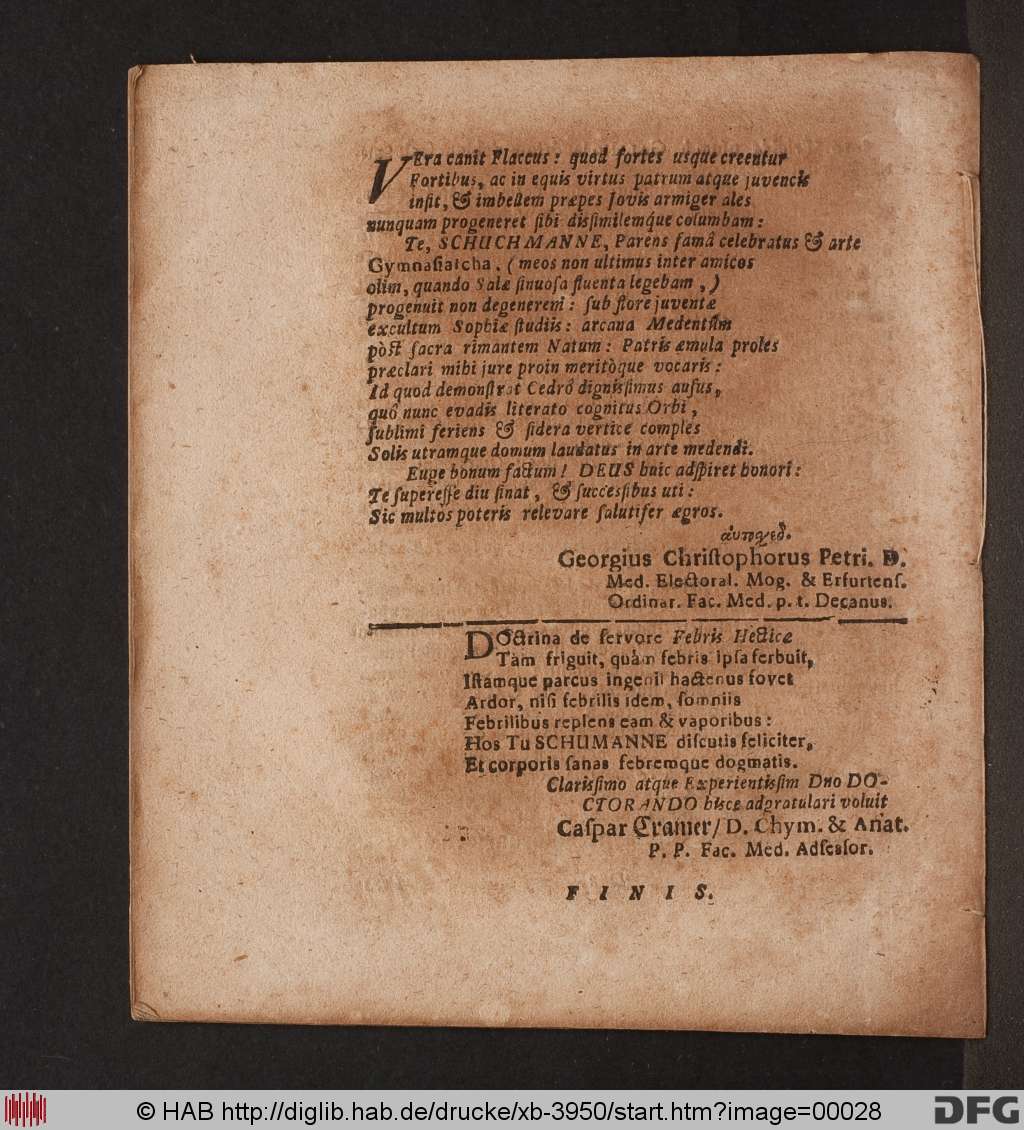 VEra canit Flaccus: quod fortes usque creentur
Fortibus, ac in equis virtus patrum atque juvencis
inſit, & imbellem præpes Jovis armiger ales
nunquam progeneret ſibi disſimilemq́ue columbam:
Te, SCHUCHMANNE, Parens famâ celebratus & arte
Gymnaſiarcha, (meos non ultimus inter amicos
olim, quando Salæ ſinuoſa fluenta legebam,)
progenuit non degenerem: ſub flore juventæ
excultum Sophiæ ſtudiis: arcana Medentûm
pòſt ſacra rimantem Natum: Patris æmula proles
præclari mihi jure proin meritòque vocaris:
Id quod demonſtrat Cedrô dignisſimus auſus,
quô nunc evadis literato cognitus Orbi,
ſublimi feriens & ſidera vertice comples
Solis utramque domum laudatus in arte medendi.
Euge bonum factum! DEUS huic adſpiret honori:
Te ſupereſſe diu ſinat, & ſuccesſibus uti:
Sic multos poteris relevare ſalutifer ægros.
αὐτοχεδ.
Georgius Chriſtophorus Petri. D.
Med. Electoral. Mog. & Erfurtenſ.
Ordinar. Fac. Med. p. t. Decanus.
DOctrina de fervore Febris Hecticæ
Tàm friguit, quàm febris ipſa ferbuit,
Iſtamque parcus ingenii hactenus fovet
Ardor, niſi febrilis idem, ſomniis
Febrilibus replens eam & vaporibus:
Hos Tu SCHUMANNE diſcutis feliciter,
Et corporis ſanas febremque dogmatis.
Clarisſimo atque Experientisſim Dno DO-
CTORANDO hisce adgratulari voluit
Caſpar Cramer/ D. Chym. & Anat.
P. P. Fac. Med. Adſesſor.
FINIS.
© HAB http://diglib.hab.de/drucke/xb-3950/start.htm?image=00028
DFG